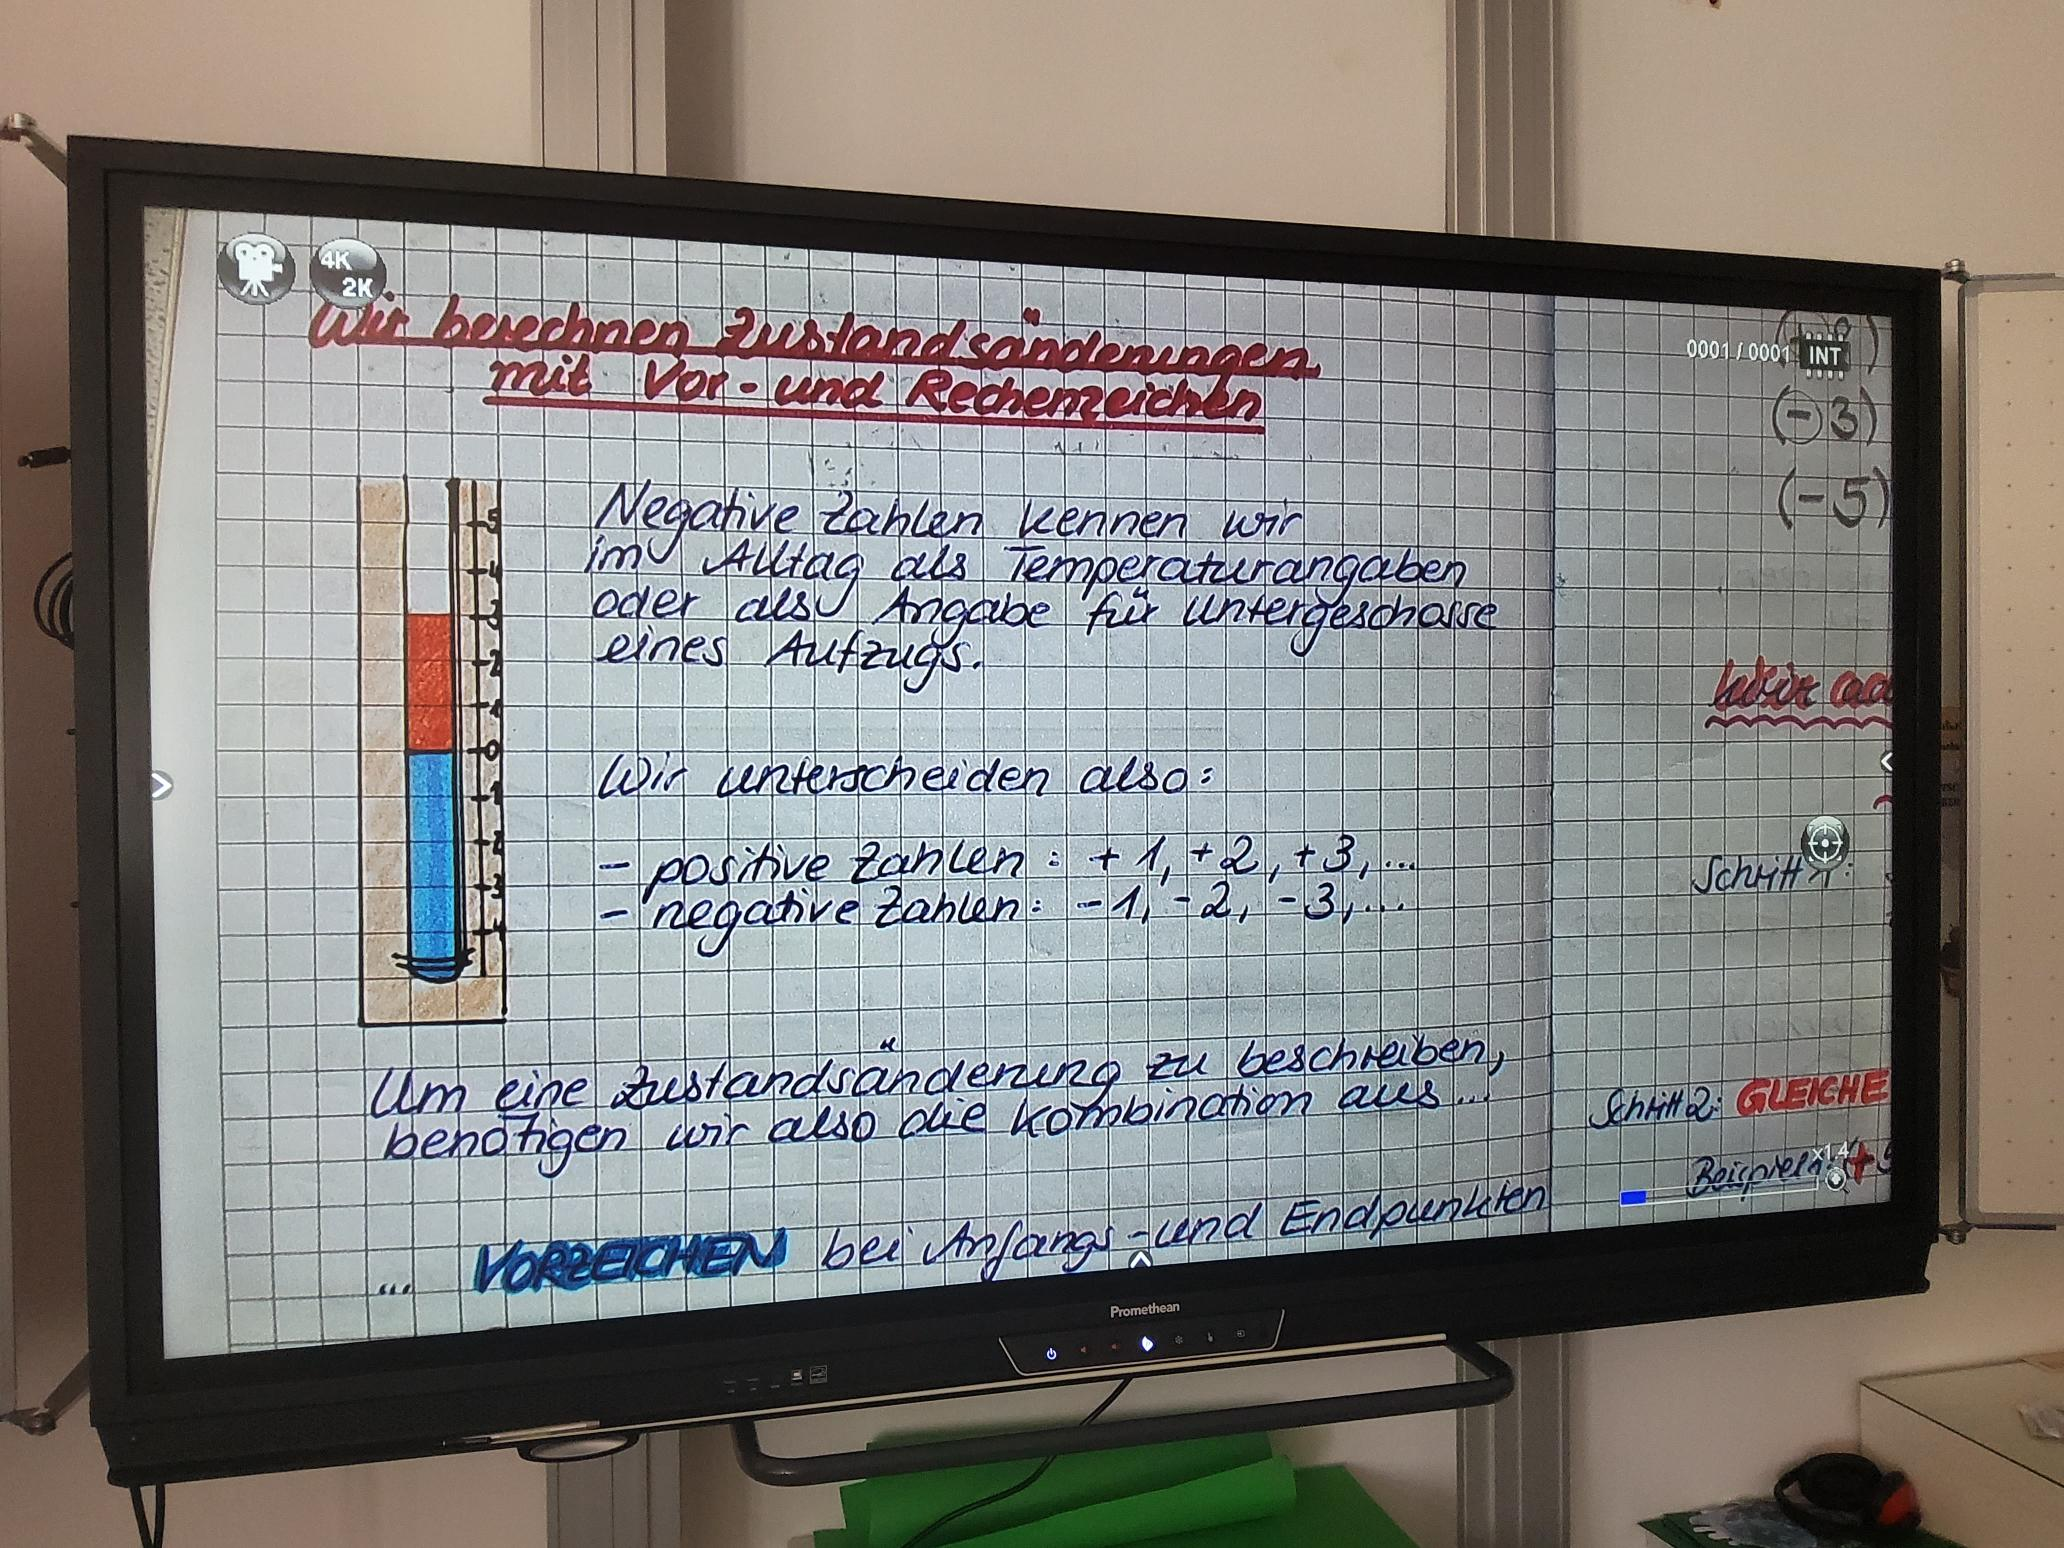 4K
2K
Wir berechnen Zustandsänderungen
mit Vor- und Rechenzeichen
0001 / 0001 INT
(-3)
(-5)
5
4
3
2
1
0
1
2
3
4
Negative Zahlen kennen wir
im Alltag als Temperaturangaben
oder als Angabe für Untergeschosse
eines Aufzugs.
Wir unterscheiden also:
- positive Zahlen: +1, +2, +3, ...
- negative Zahlen: -1, -2, -3, ...
Um eine Zustandsänderung zu beschreiben,
benötigen wir also die Kombination aus...
... VORZEICHEN bei Anfangs- und Endpunkten
Schritt 1:
Schritt 2: GLEICHE
x1.4
Promethean